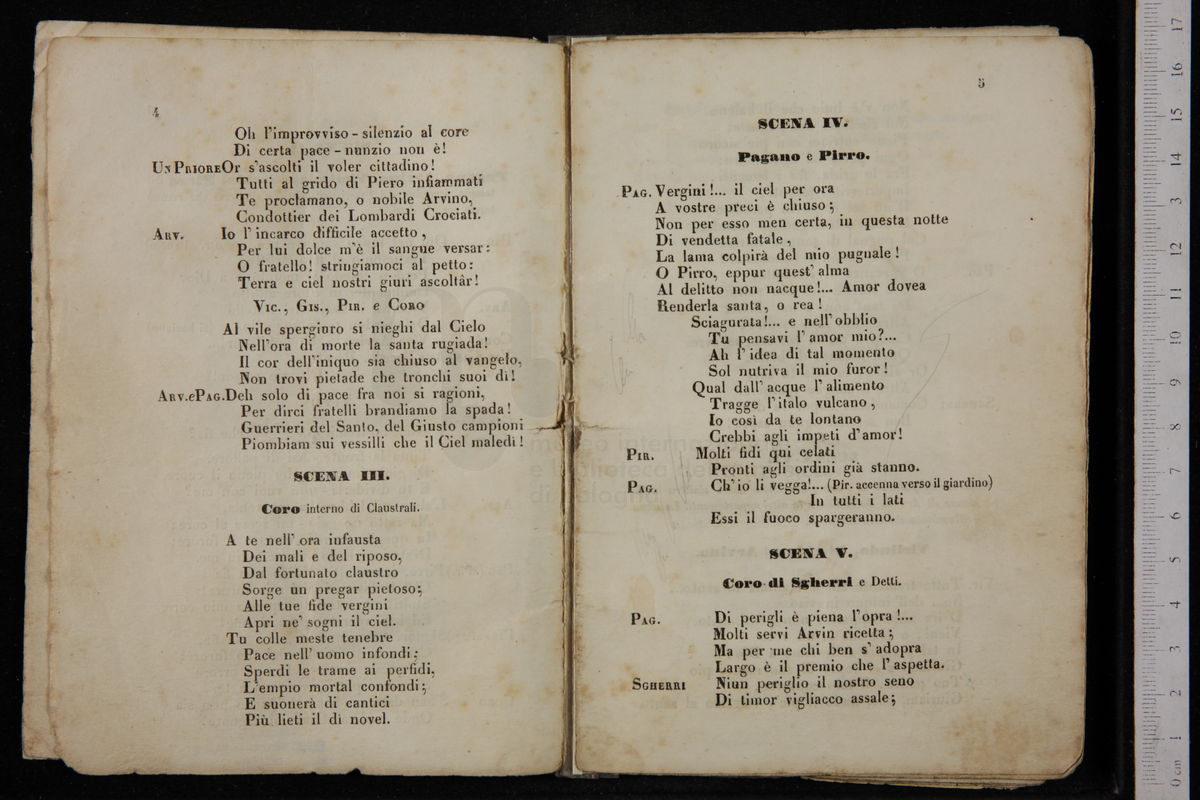 4
Oh l'improvviso - silenzio al core
Di certa pace - nunzio non è!
UN PRIORE Or s'ascolti il voler cittadino!
Tutti al grido di Piero infiammati
Te proclamano, o nobile Arvino,
Condottier dei Lombardi Crociati.
ARV. Io l'incarco difficile accetto,
Per lui dolce m'è il sangue versar:
O fratello! stringiamoci al petto:
Terra e ciel nostri giuri ascoltâr!
VIC., GIS., PIR. e CORO
Al vile spergiuro si nieghi dal Cielo
Nell'ora di morte la santa rugiada!
Il cor dell'iniquo sia chiuso al vangelo,
Non trovi pietade che tronchi suoi dì!
ARV. e PAG. Deh solo di pace fra noi si ragioni,
Per dirci fratelli brandiamo la spada!
Guerrieri del Santo, del Giusto campioni
Piombiam sui vessilli che il Ciel maledì!
SCENA III.
Coro interno di Claustrali.
A te nell' ora infausta
Dei mali e del riposo,
Dal fortunato claustro
Sorge un pregar pietoso;
Alle tue fide vergini
Apri ne' sogni il ciel.
Tu colle meste tenebre
Pace nell' uomo infondi;
Sperdi le trame ai perfidi,
L'empio mortal confondi;
E suonerà di cantici
Più lieti il dì novel.
5
SCENA IV.
Pagano e Pirro.
PAG. Vergini!... il ciel per ora
A vostre preci è chiuso;
Non per esso men certa, in questa notte
Di vendetta fatale,
La lama colpirà del mio pugnale!
O Pirro, eppur quest' alma
Al delitto non nacque!... Amor dovea
Renderla santa, o rea!
Sciagurata!... e nell' obblio
Tu pensavi l' amor mio?...
Ah l' idea di tal momento
Sol nutriva il mio furor!
Qual dall' acque l' alimento
Tragge l' italo vulcano,
Io così da te lontano
Crebbi agli impeti d'amor!
PIR. Molti fidi qui celati
Pronti agli ordini già stanno.
PAG. Ch' io li vegga!... (Pir. accenna verso il giardino)
In tutti i lati
Essi il fuoco spargeranno.
SCENA V.
Coro di Sgherri e Detti.
PAG. Di perigli è piena l'opra!...
Molti servi Arvin ricetta;
Ma per me chi ben s' adopra
Largo è il premio che l' aspetta.
SGHERRI Niun periglio il nostro seno
Di timor vigliacco assale;